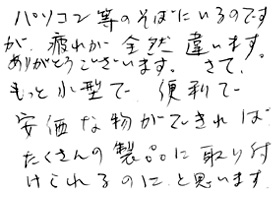 パソコン等のそばにいるのです
が、疲れが全然違います。
ありがとうございます。さて、
もっと小型で便利で
安価な物ができれば、
たくさんの製品に取り付
けられるのにと思います。